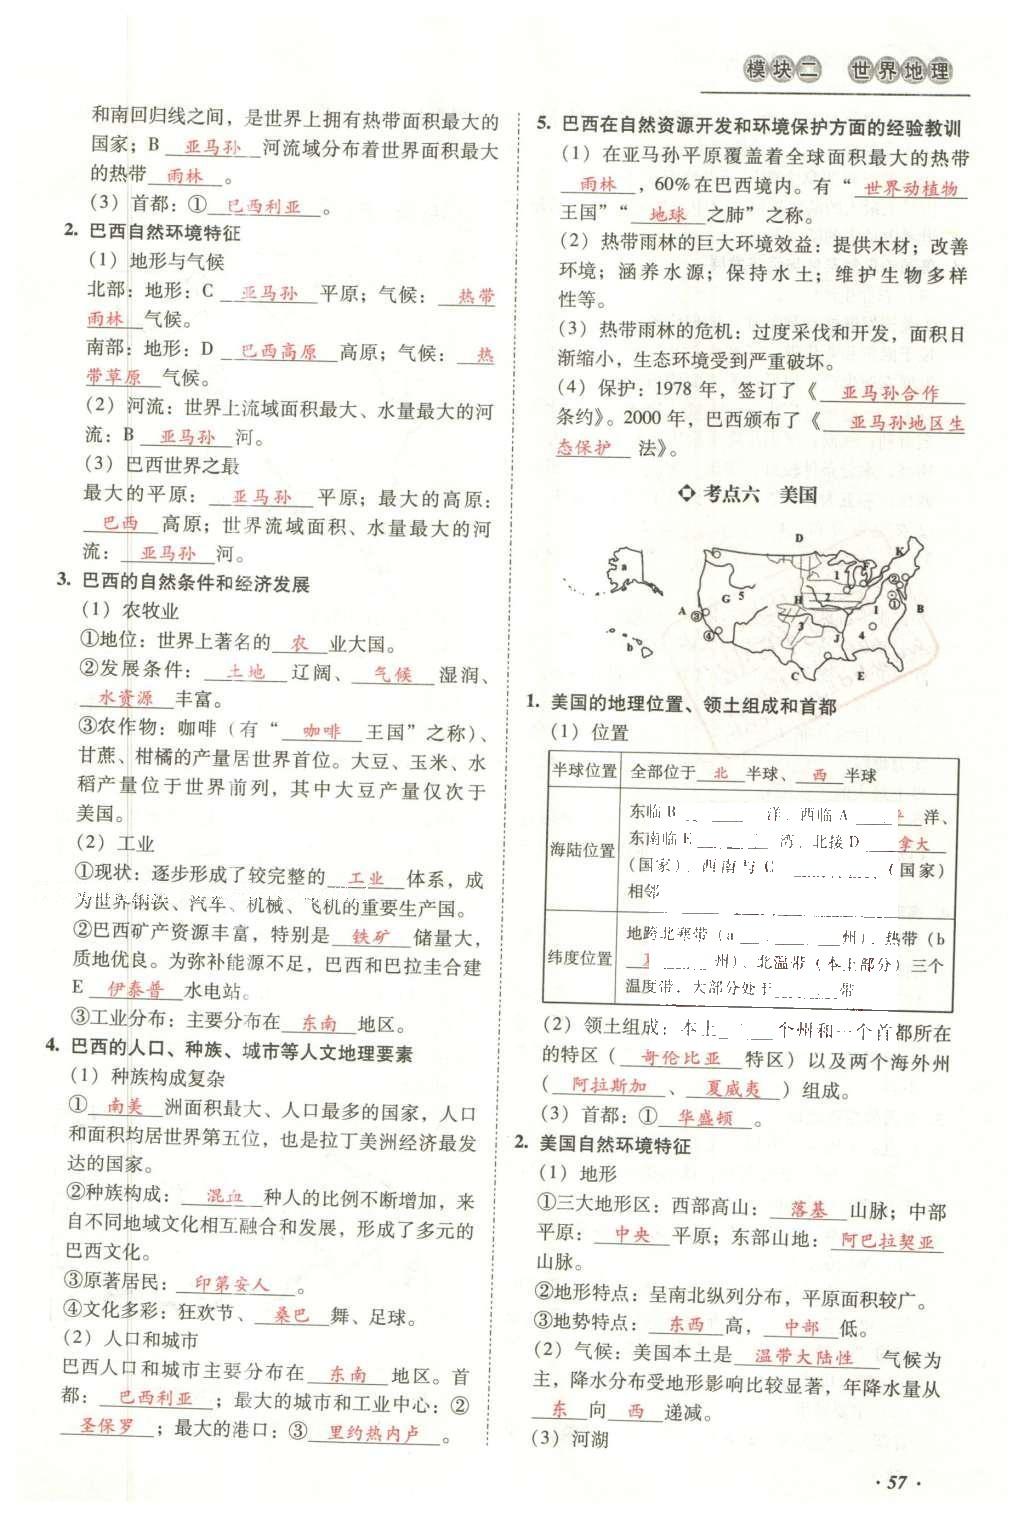 模块二 世界地理
和南回归线之间，是世界上拥有热带面积最大的
国家；B 亚马孙 河流域分布着世界面积最大
的热带 雨林 。
（3）首都：① 巴西利亚 。
2. 巴西自然环境特征
（1）地形与气候
北部：地形：C 亚马孙 平原；气候： 热带
雨林 气候。
南部：地形：D 巴西高原 高原；气候： 热
带草原 气候。
（2）河流：世界上流域面积最大、水量最大的河
流：B 亚马孙 河。
（3）巴西世界之最
最大的平原： 亚马孙 平原；最大的高原：
巴西 高原；世界流域面积、水量最大的河
流： 亚马孙 河。
3. 巴西的自然条件和经济发展
（1）农牧业
①地位：世界上著名的 农 业大国。
②发展条件： 土地 辽阔、 气候 湿润、
水资源 丰富。
③农作物：咖啡（有“ 咖啡 王国”之称）、
甘蔗、柑橘的产量居世界首位。大豆、玉米、水
稻产量位于世界前列，其中大豆产量仅次于
美国。
（2）工业
①现状：逐步形成了较完整的 工业 体系，成
为世界钢铁、汽车、机械、飞机的重要生产国。
②巴西矿产资源丰富，特别是 铁矿 储量大，
质地优良。为弥补能源不足，巴西和巴拉圭合建
E 伊泰普 水电站。
③工业分布：主要分布在 东南 地区。
4. 巴西的人口、种族、城市等人文地理要素
（1）种族构成复杂
① 南美 洲面积最大、人口最多的国家，人口
和面积均居世界第五位，也是拉丁美洲经济最发
达的国家。
②种族构成： 混血 种人的比例不断增加，来
自不同地域文化相互融合和发展，形成了多元的
巴西文化。
③原著居民： 印第安人 。
④文化多彩：狂欢节、 桑巴 舞、足球。
（2）人口和城市
巴西人口和城市主要分布在 东南 地区。首
都： 巴西利亚 ；最大的城市和工业中心：②
圣保罗 ；最大的港口：③ 里约热内卢 。
5. 巴西在自然资源开发和环境保护方面的经验教训
（1）在亚马孙平原覆盖着全球面积最大的热带
雨林 ，60%在巴西境内。有“ 世界动植物
王国”“ 地球 之肺”之称。
（2）热带雨林的巨大环境效益：提供木材；改善
环境；涵养水源；保持水土；维护生物多样
性等。
（3）热带雨林的危机：过度采伐和开发，面积日
渐缩小，生态环境受到严重破坏。
（4）保护：1978 年，签订了《 亚马孙合作
条约》。2000 年，巴西颁布了《 亚马孙地区生
态保护 法》。
考点六 美国
D
K
a
1
F
②
G 5
H 2
①
A ③
3
I
B
④
J 4
b
C
E
1. 美国的地理位置、领土组成和首都
（1）位置
半球位置 全部位于 北 半球、 西 半球
海陆位置
东临 B 洋，西临 A 洋、
东南临 E 湾，北接 D 拿大
（国家），西南与 C （国家）
相邻
纬度位置
地跨北寒带（a 州）、热带（b
州）、北温带（本土部分）三个
温度带，大部分处于 带
（2）领土组成：本土 个州和一个首都所在
的特区（ 哥伦比亚 特区）以及两个海外州
（ 阿拉斯加 、 夏威夷 ）组成。
（3）首都：① 华盛顿 。
2. 美国自然环境特征
（1）地形
①三大地形区：西部高山： 落基 山脉；中部
平原： 中央 平原；东部山地： 阿巴拉契亚
山脉。
②地形特点：呈南北纵列分布，平原面积较广。
③地势特点： 东西 高， 中部 低。
（2）气候：美国本土是 温带大陆性 气候为
主，降水分布受地形影响比较显著，年降水量从
东 向 西 递减。
（3）河湖
· 57 ·